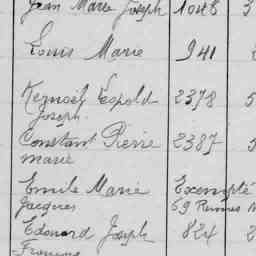 Jean Marie Joseph 1048 3
Louis Marie 941
Keznoël Léopold 2378 5
Joseph
Constant Pierre 2387 5
Marie
Emile Marie Exempté
Jacques 59 Rennes
Edouard Joseph 824